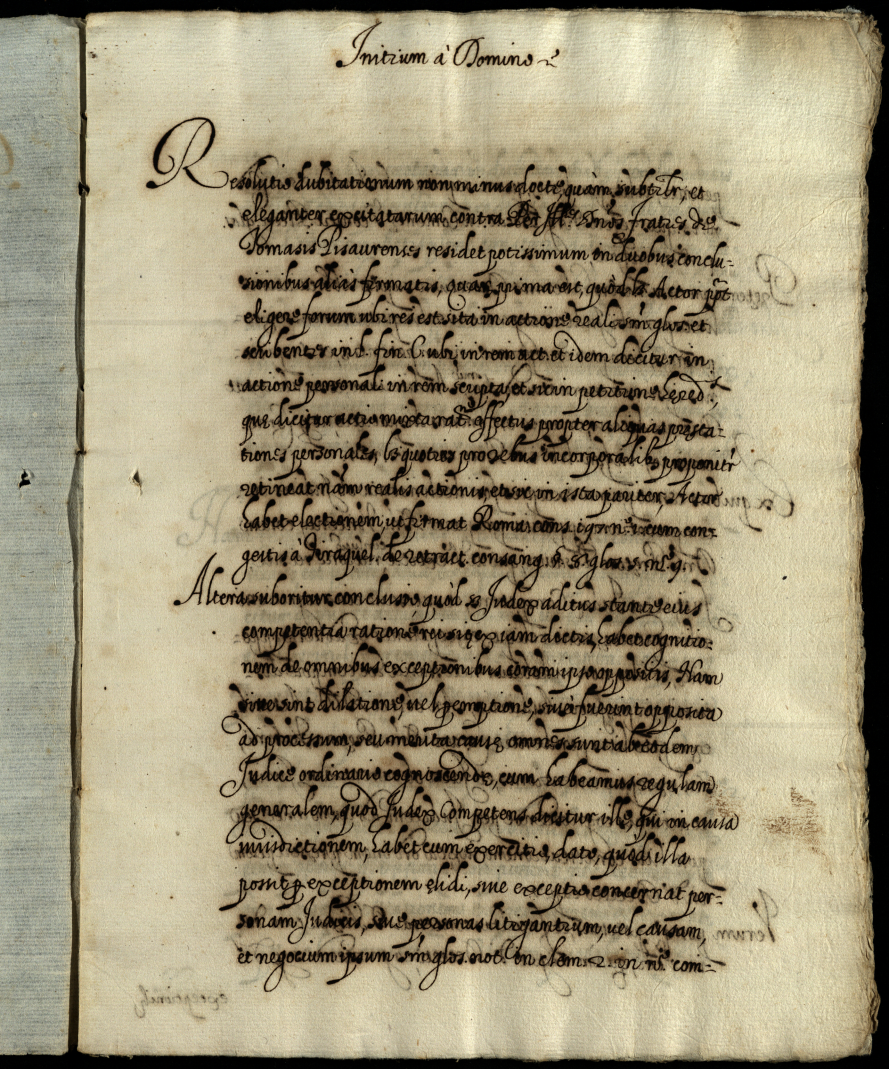 Initium à Domino
Resolutio dubitationum non minus docte, quàm subtilr, et
eleganter excitatarum contra Dnos fratres de
Tomasis Pisaurenses residet potissimum in duobus conclu-
sionibus aliàs firmatis, quar prima est, quòd Actor pōt
eligere forum ubi res est sita in actione reali sm̄ glos. et
scribentes in l. fin. C. ubi in rem act. et idem dicitur in
actione personali in rem scripta, et sic in petitione hered.
que dicitur actio mixta affectus propter aliquas presta-
tiones personales, quoties pro rebus incorporalibs proponitr
retineat nām realis actionis, et sic in ista pariter Actor
habet electionem ut firmat Roma. cons. cum con-
gestis à Tiraquel. de retract. consang. glos.
Altera suboritur conclusio, quòd Judex aditus stante eius
competentia ratione rei sitę iam dictis, habet cognitio-
nem de omnibus exceptionibus coram ipso oppositis, Nam
sive sint dilatione, uel peremptione, siue fuerint opposita
ad processum, seu merita causę omnes sunt ab eodem
Judice ordinario cognoscende, cum habeamus regulam
generalem, quod Judex Competens dicitur ille, qui in causa
iurisdictionem habet cum exercitio, dato, quòd illa
possit p exceptionem elidi, siue exceptio concernat per-
sonam Judicis, siue personas litigantium, uel causam,
et negocium ipsum sm̄ glos. not. in clem. 2. in com-